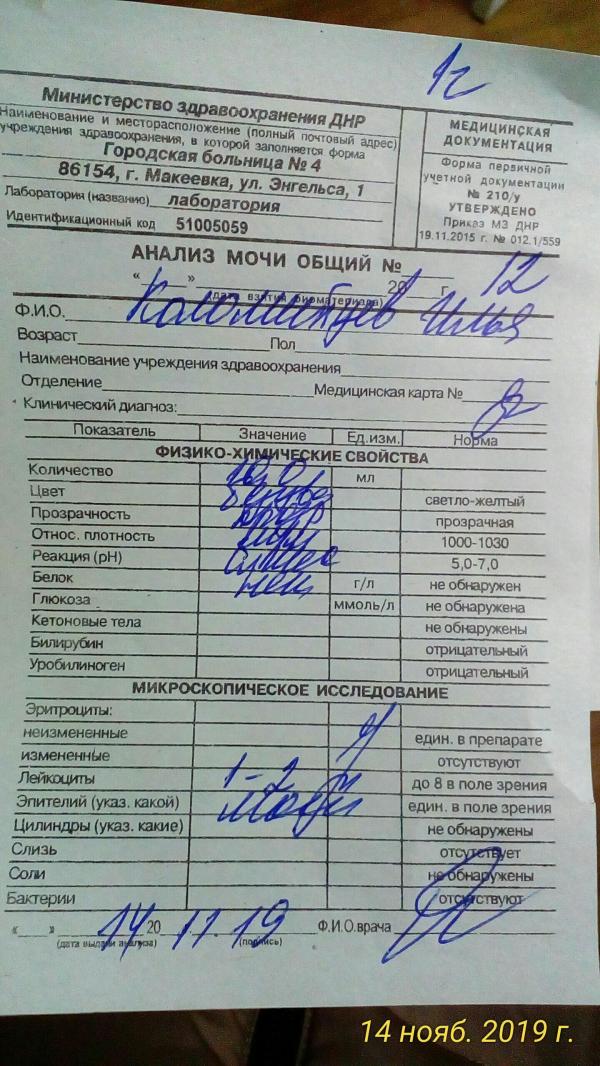 1г
Министерство здравоохранения ДНР
Наименование и месторасположение (полный почтовый адрес)
учреждения здравоохранения, в которой заполняется форма
Городская больница № 4
86154, г. Макеевка, ул. Энгельса, 1
Лаборатория (название) лаборатория
Идентификационный код 51005059
МЕДИЦИНСКАЯ
ДОКУМЕНТАЦИЯ
Форма первичной
учетной документации
№ 210/у
УТВЕРЖДЕНО
Приказ МЗ ДНР
19.11.2015 г. № 012.1/559
АНАЛИЗ МОЧИ ОБЩИЙ №
12
«___»___20___г.
(дата взятия биоматериала)
Ф.И.О. Илья
Возраст Пол
Наименование учреждения здравоохранения
Отделение Медицинская карта №
Клинический диагноз:
Показатель Значение Ед.изм. Норма
ФИЗИКО-ХИМИЧЕСКИЕ СВОЙСТВА
Количество мл
Цвет светло-желтый
Прозрачность прозрачная
Относ. плотность 1000-1030
Реакция (pH) 5,0-7,0
Белок нет г/л не обнаружен
Глюкоза ммоль/л не обнаружена
Кетоновые тела не обнаружены
Билирубин отрицательный
Уробилиноген отрицательный
МИКРОСКОПИЧЕСКОЕ ИССЛЕДОВАНИЕ
Эритроциты:
неизмененные един. в препарате
измененные отсутствуют
Лейкоциты 1-2 до 8 в поле зрения
Эпителий (указ. какой) един. в поле зрения
Цилиндры (указ. какие) не обнаружены
Слизь отсутствует
Соли не обнаружены
Бактерии отсутствуют
«___» 14 20 11.19 Ф.И.О.врача
(дата выдачи анализа) (подпись)
14 нояб. 2019 г.